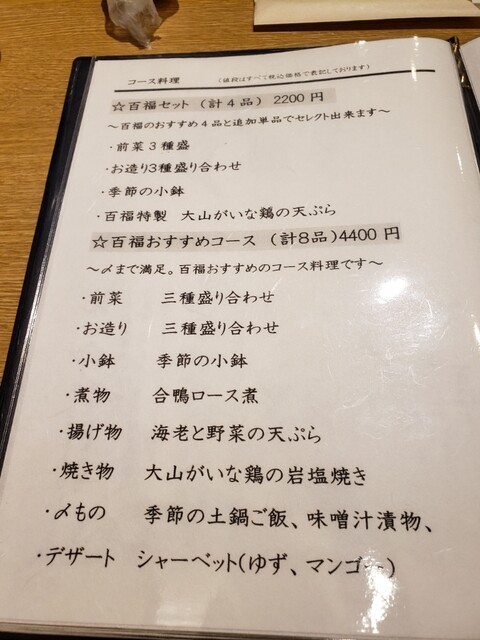 コース料理 （値段はすべて税込価格で表記しております）
☆百福セット（計４品）2200円
～百福のおすすめ４品と追加単品でセレクト出来ます～
・前菜３種盛
・お造り3種盛り合わせ
・季節の小鉢
・百福特製 大山がいな鶏の天ぷら
☆百福おすすめコース（計8品）4400円
～〆まで満足。百福おすすめのコース料理です～
・前菜 三種盛り合わせ
・お造り 三種盛り合わせ
・小鉢 季節の小鉢
・煮物 合鴨ロース煮
・揚げ物 海老と野菜の天ぷら
・焼き物 大山がいな鶏の岩塩焼き
・〆もの 季節の土鍋ご飯、味噌汁漬物、
・デザート シャーベット(ゆず、マンゴー)